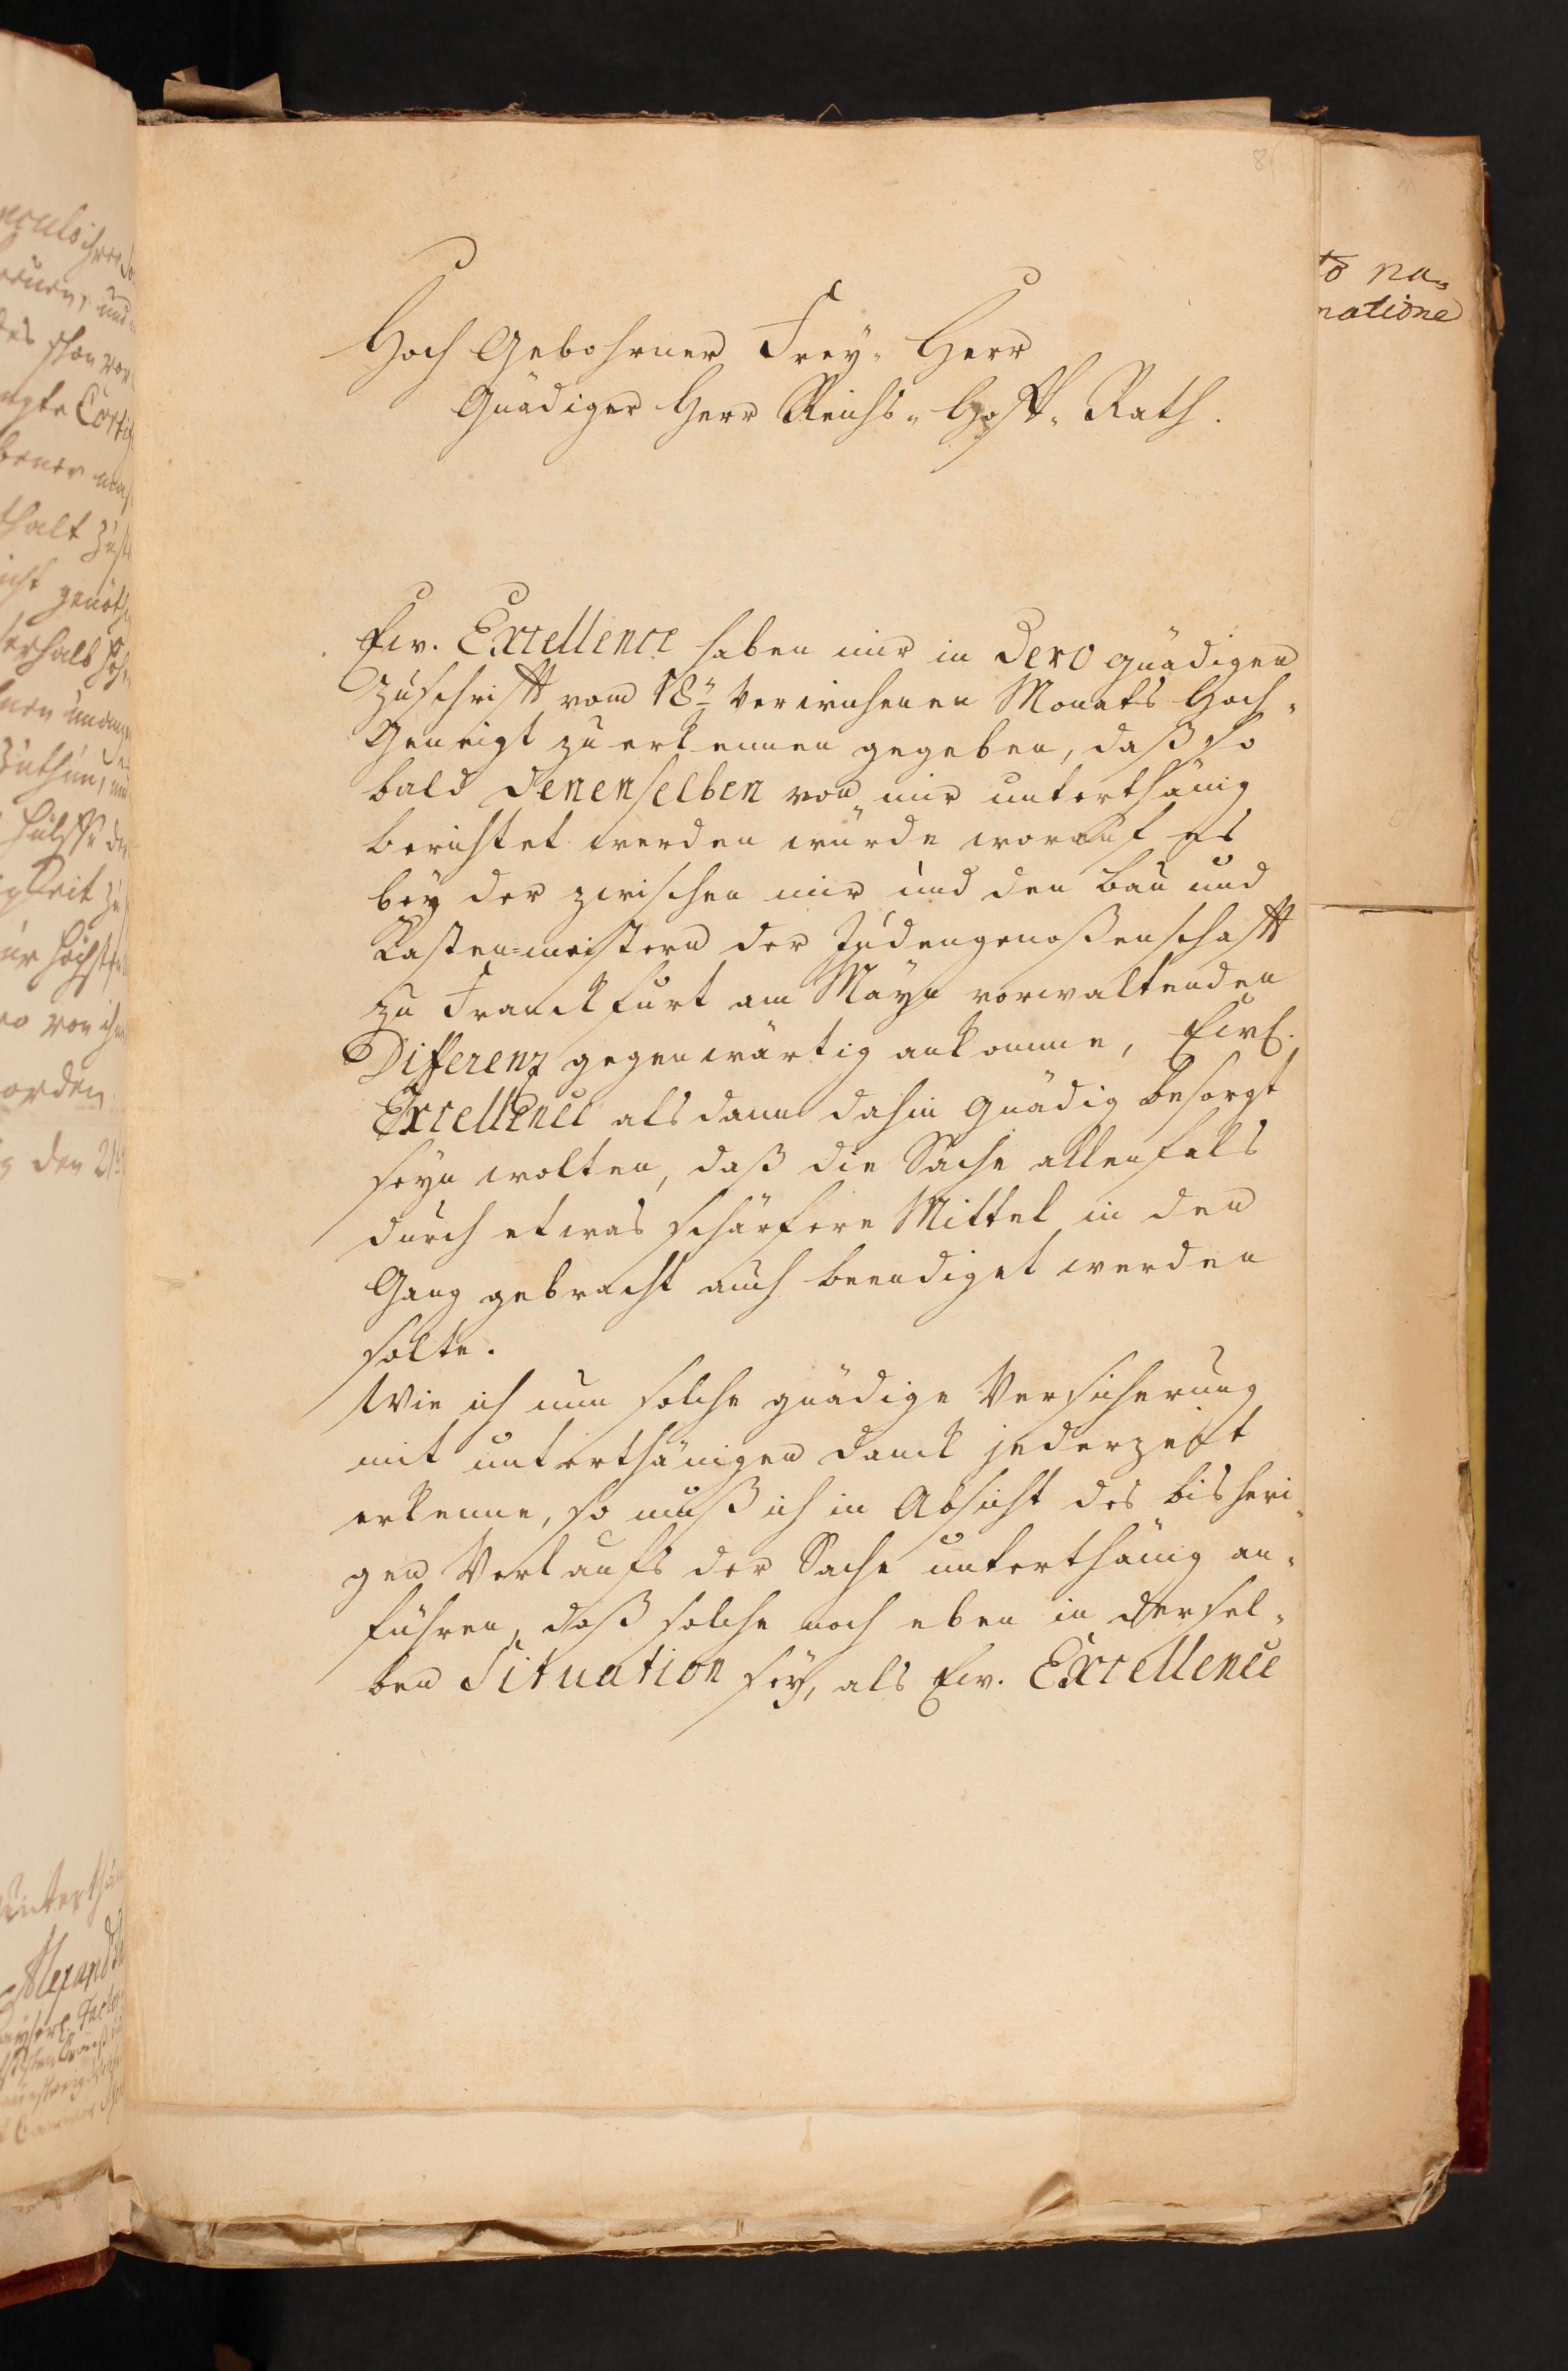 8
Hoch Gebohrner Frey- Herr
Gnädiger Herr Reichs- Hoff- Rath.
Ew. Excellence haben mir in Dero gnädigen
Zuschrifft vom 18ⁿ verwichenen Monats Hoch-
Geneigt zu erkennen gegeben, daß so
bald denenselben von mir unterthänig
berichtet werden würde worauf es
bey der zwischen mir und den Bau und
Kasten-meistern der Judengenoßenschafft
zu Franckfurt am Mäyn vorwaltenden
Differenz gegenwärtig ankomme, Ew.
Excellence als dann dahin gnädig besorgt
seyn wolten, daß die Sache allenfals
durch etwas schärfere Mittel in den
Gang gebracht auch beendiget werden
solte.
Wie ich nun solche gnädige Versicherung
mit unterthänigen Danck jederzeit
erkenne, so muß ich in Absicht des bisheri-
gen Verlaufs der Sache unterthänig an-
führen, daß solche noch eben in dersel-
ben Situation sey, als Ew. Excellence
to na-
natione